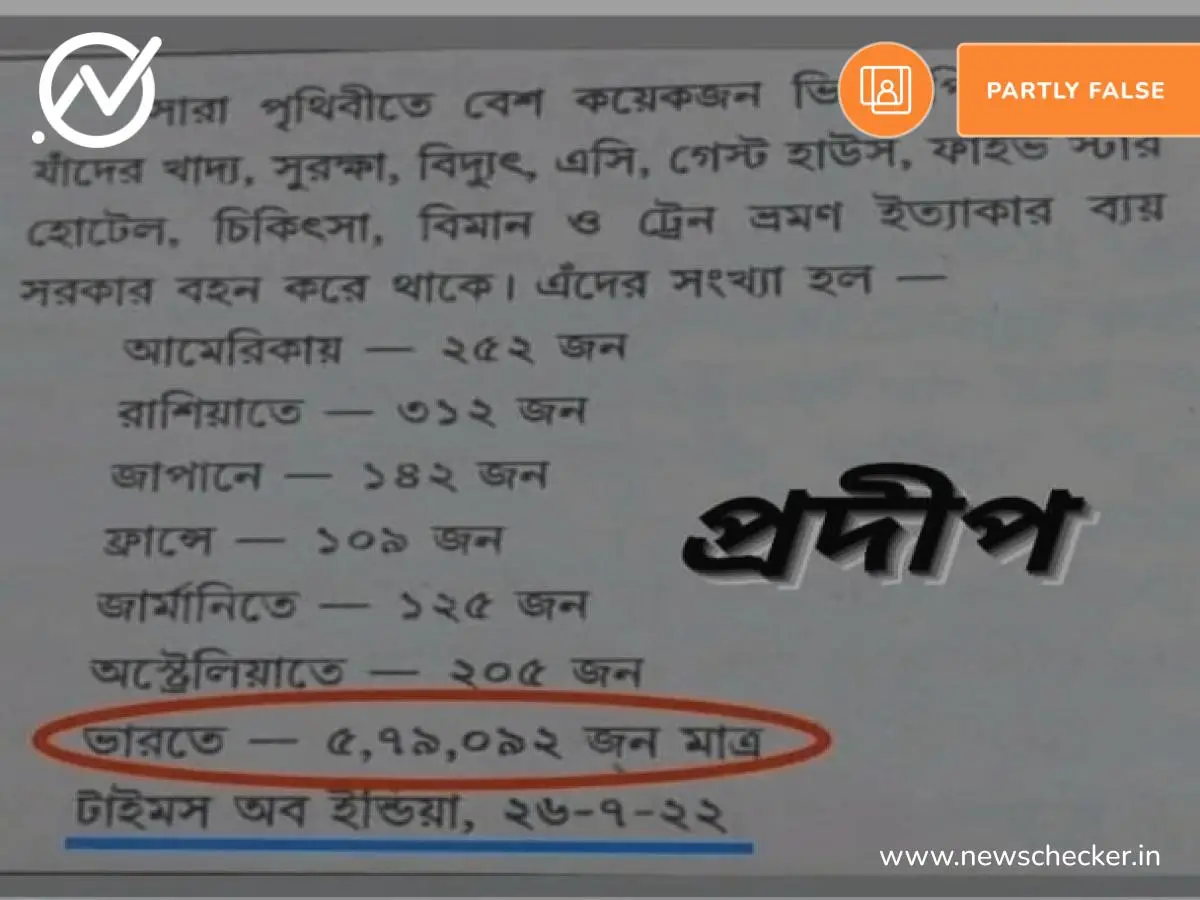 সারা পৃথিবীতে বেশ কয়েকজন
PARTLY FALSE
যাঁদের খাদ্য, সুরক্ষা, বিদ্যুৎ, এসি, গেস্ট হাউস, ফাইভ স্টার
হোটেল, চিকিৎসা, বিমান ও ট্রেন ভ্রমণ ইত্যাকার ব্যয়
সরকার বহন করে থাকে। এঁদের সংখ্যা হল —
আমেরিকায় — ২৫২ জন
রাশিয়াতে — ৩১২ জন
জাপানে — ১৪২ জন
ফ্রান্সে — ১০৯ জন
প্রদীপ
জার্মানিতে — ১২৫ জন
অস্ট্রেলিয়াতে — ২০৫ জন
ভারতে — ৫,৭৯,০৯২ জন মাত্র
টাইমস অব ইন্ডিয়া, ২৬-৭-২২
www.newschecker.in